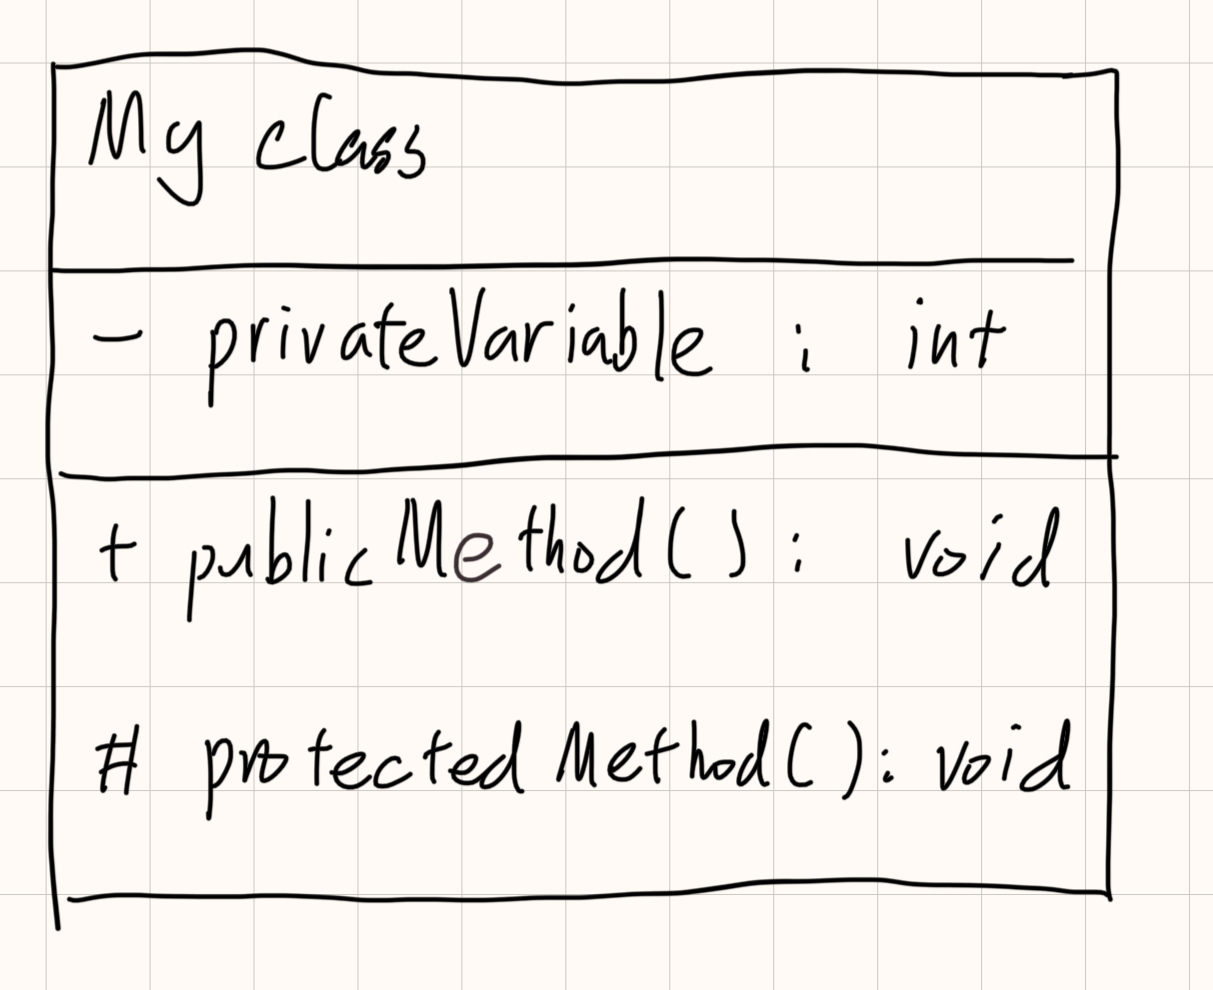 My class
- privateVariable : int
+ publicMethod() : void
# protectedMethod() : void